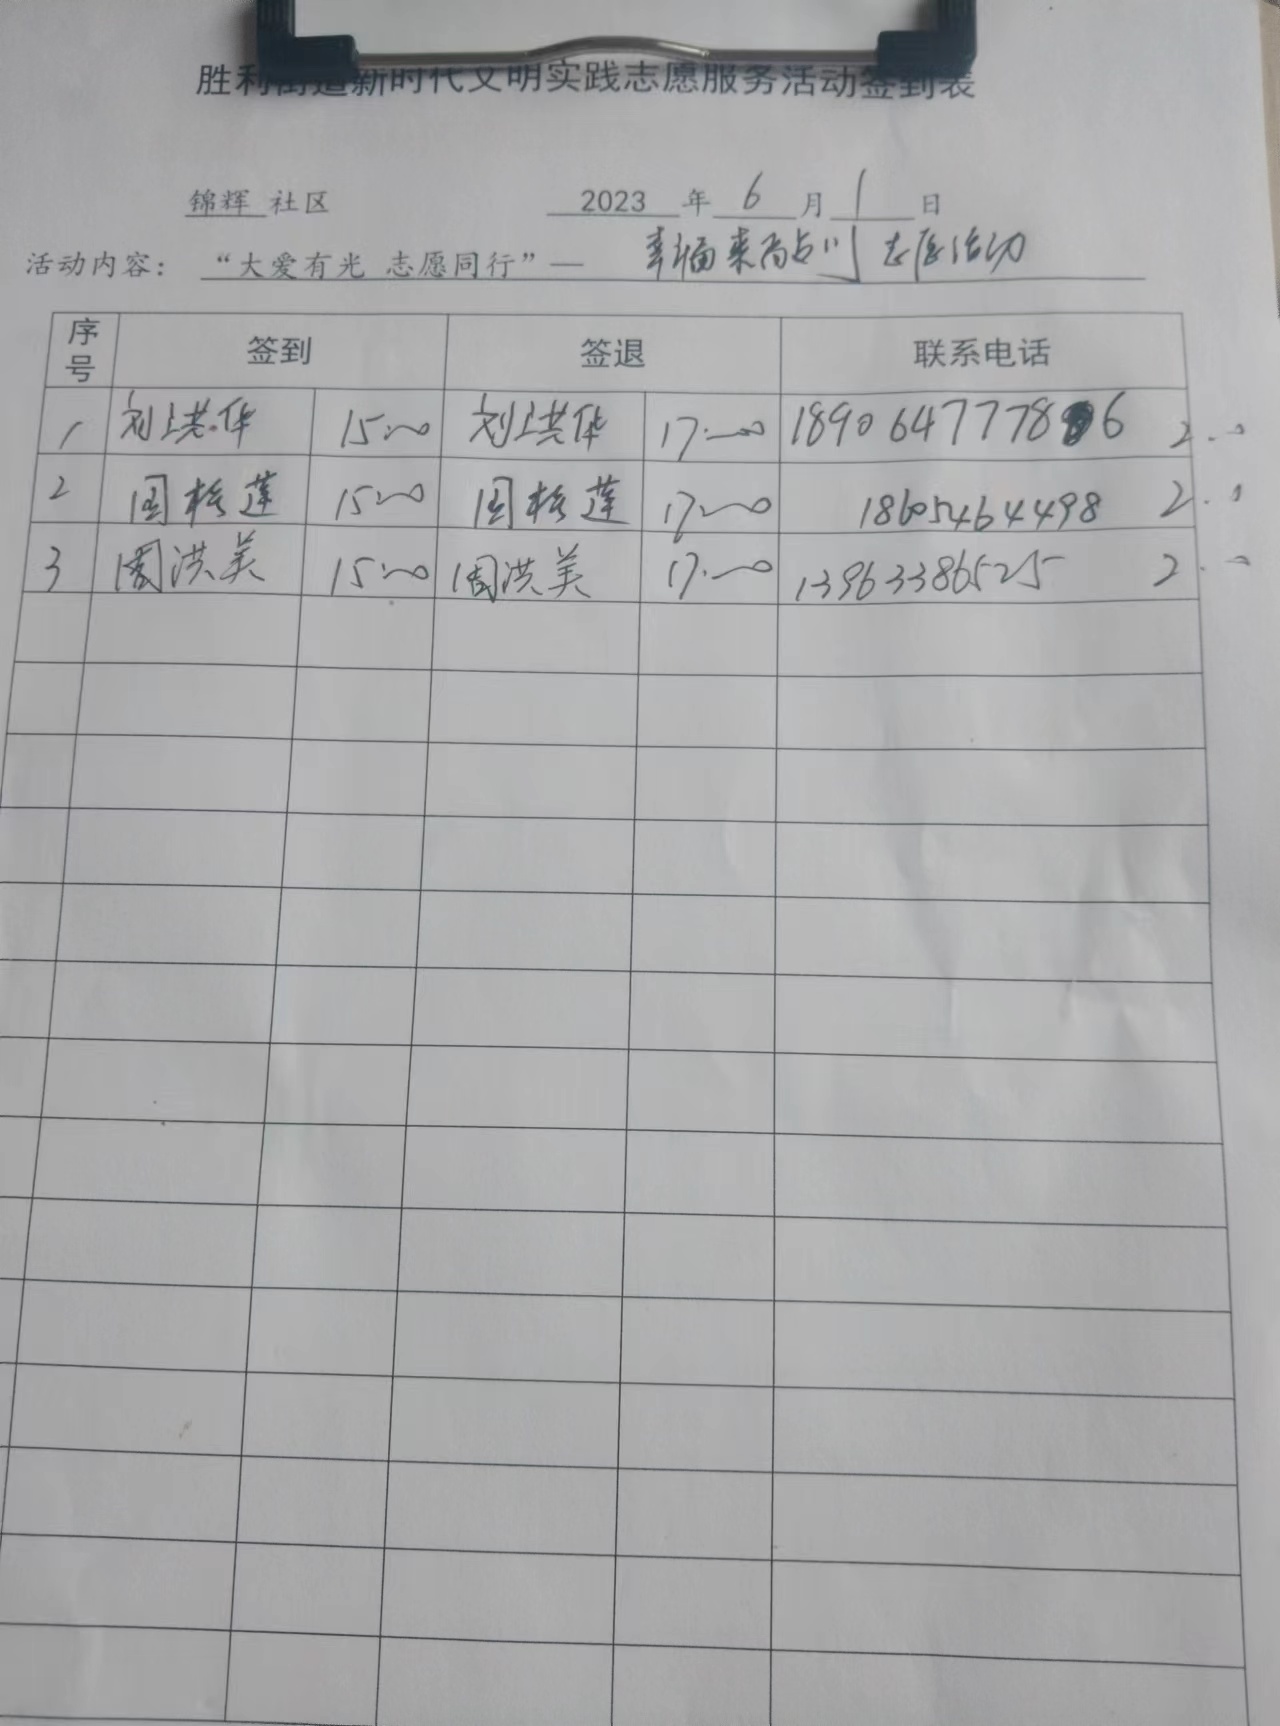 胜利街道新时代文明实践志愿服务活动签到表
锦辉 社区 2023 年 6 月 1 日
活动内容： “大爱有光 志愿同行”— 幸福来 志愿活动
序号 签到 签退 联系电话
1 刘洪华 15:00 刘洪华 17:00 1890647778 6 2.0
2 15:00 17:00 18605464498 2.0
3 周洪美 15:00 周洪美 17:00 13963386525 2.0